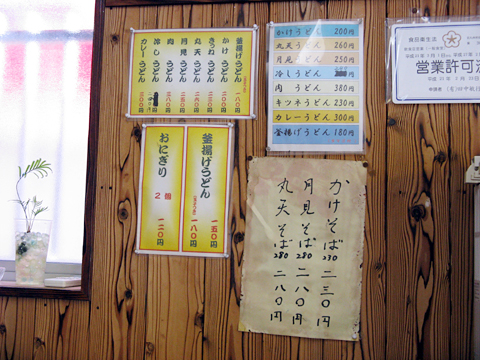 釜揚げうどん 一八〇円
かけうどん 二〇〇円
きつねうどん 二三〇円
丸天うどん 二六〇円
月見うどん 二五〇円
肉うどん 三八〇円
冷しうどん
カレーうどん 三〇〇円
かけうどん 200円
丸天うどん 260円
月見うどん 250円
冷しうどん
肉うどん 380円
キツネうどん 230円
カレーうどん 300円
釜揚げうどん 180円
営業許可
釜揚げうどん 一五〇
一八〇円
おにぎり 2個 一二〇円
かけそば 230 二三〇円
月見そば 280 二八〇円
丸天そば 280 二八〇円